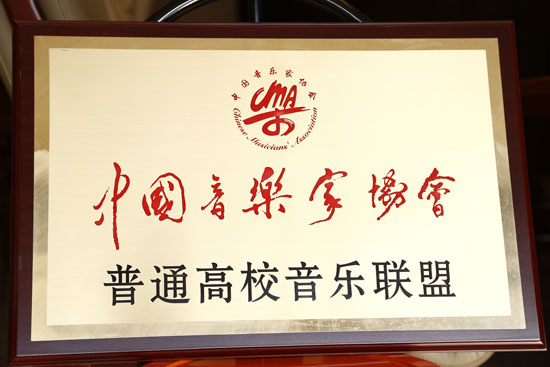 中国音乐家协会
CMA
Chinese Musicians' Association
中國音樂家協會
普通高校音乐联盟